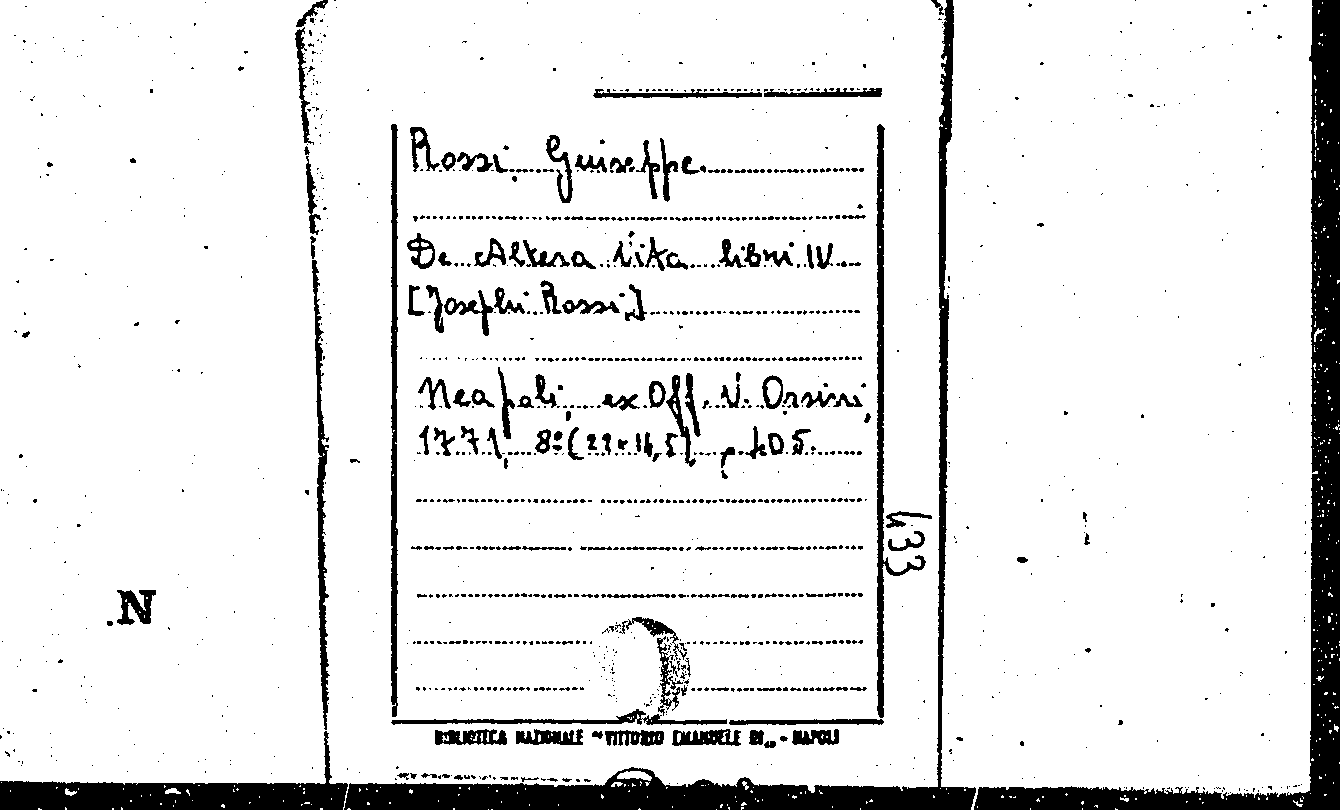 Rossi Giuseppe.
De Altera Vita libri IV.
[Josephi Rossi.]
Neapoli, ex Off. V. Orsini,
1771, 8º (22x14,5), p. 405.
433
N.
BIBLIOTECA NAZIONALE "VITTORIO EMANUELE III" - NAPOLI